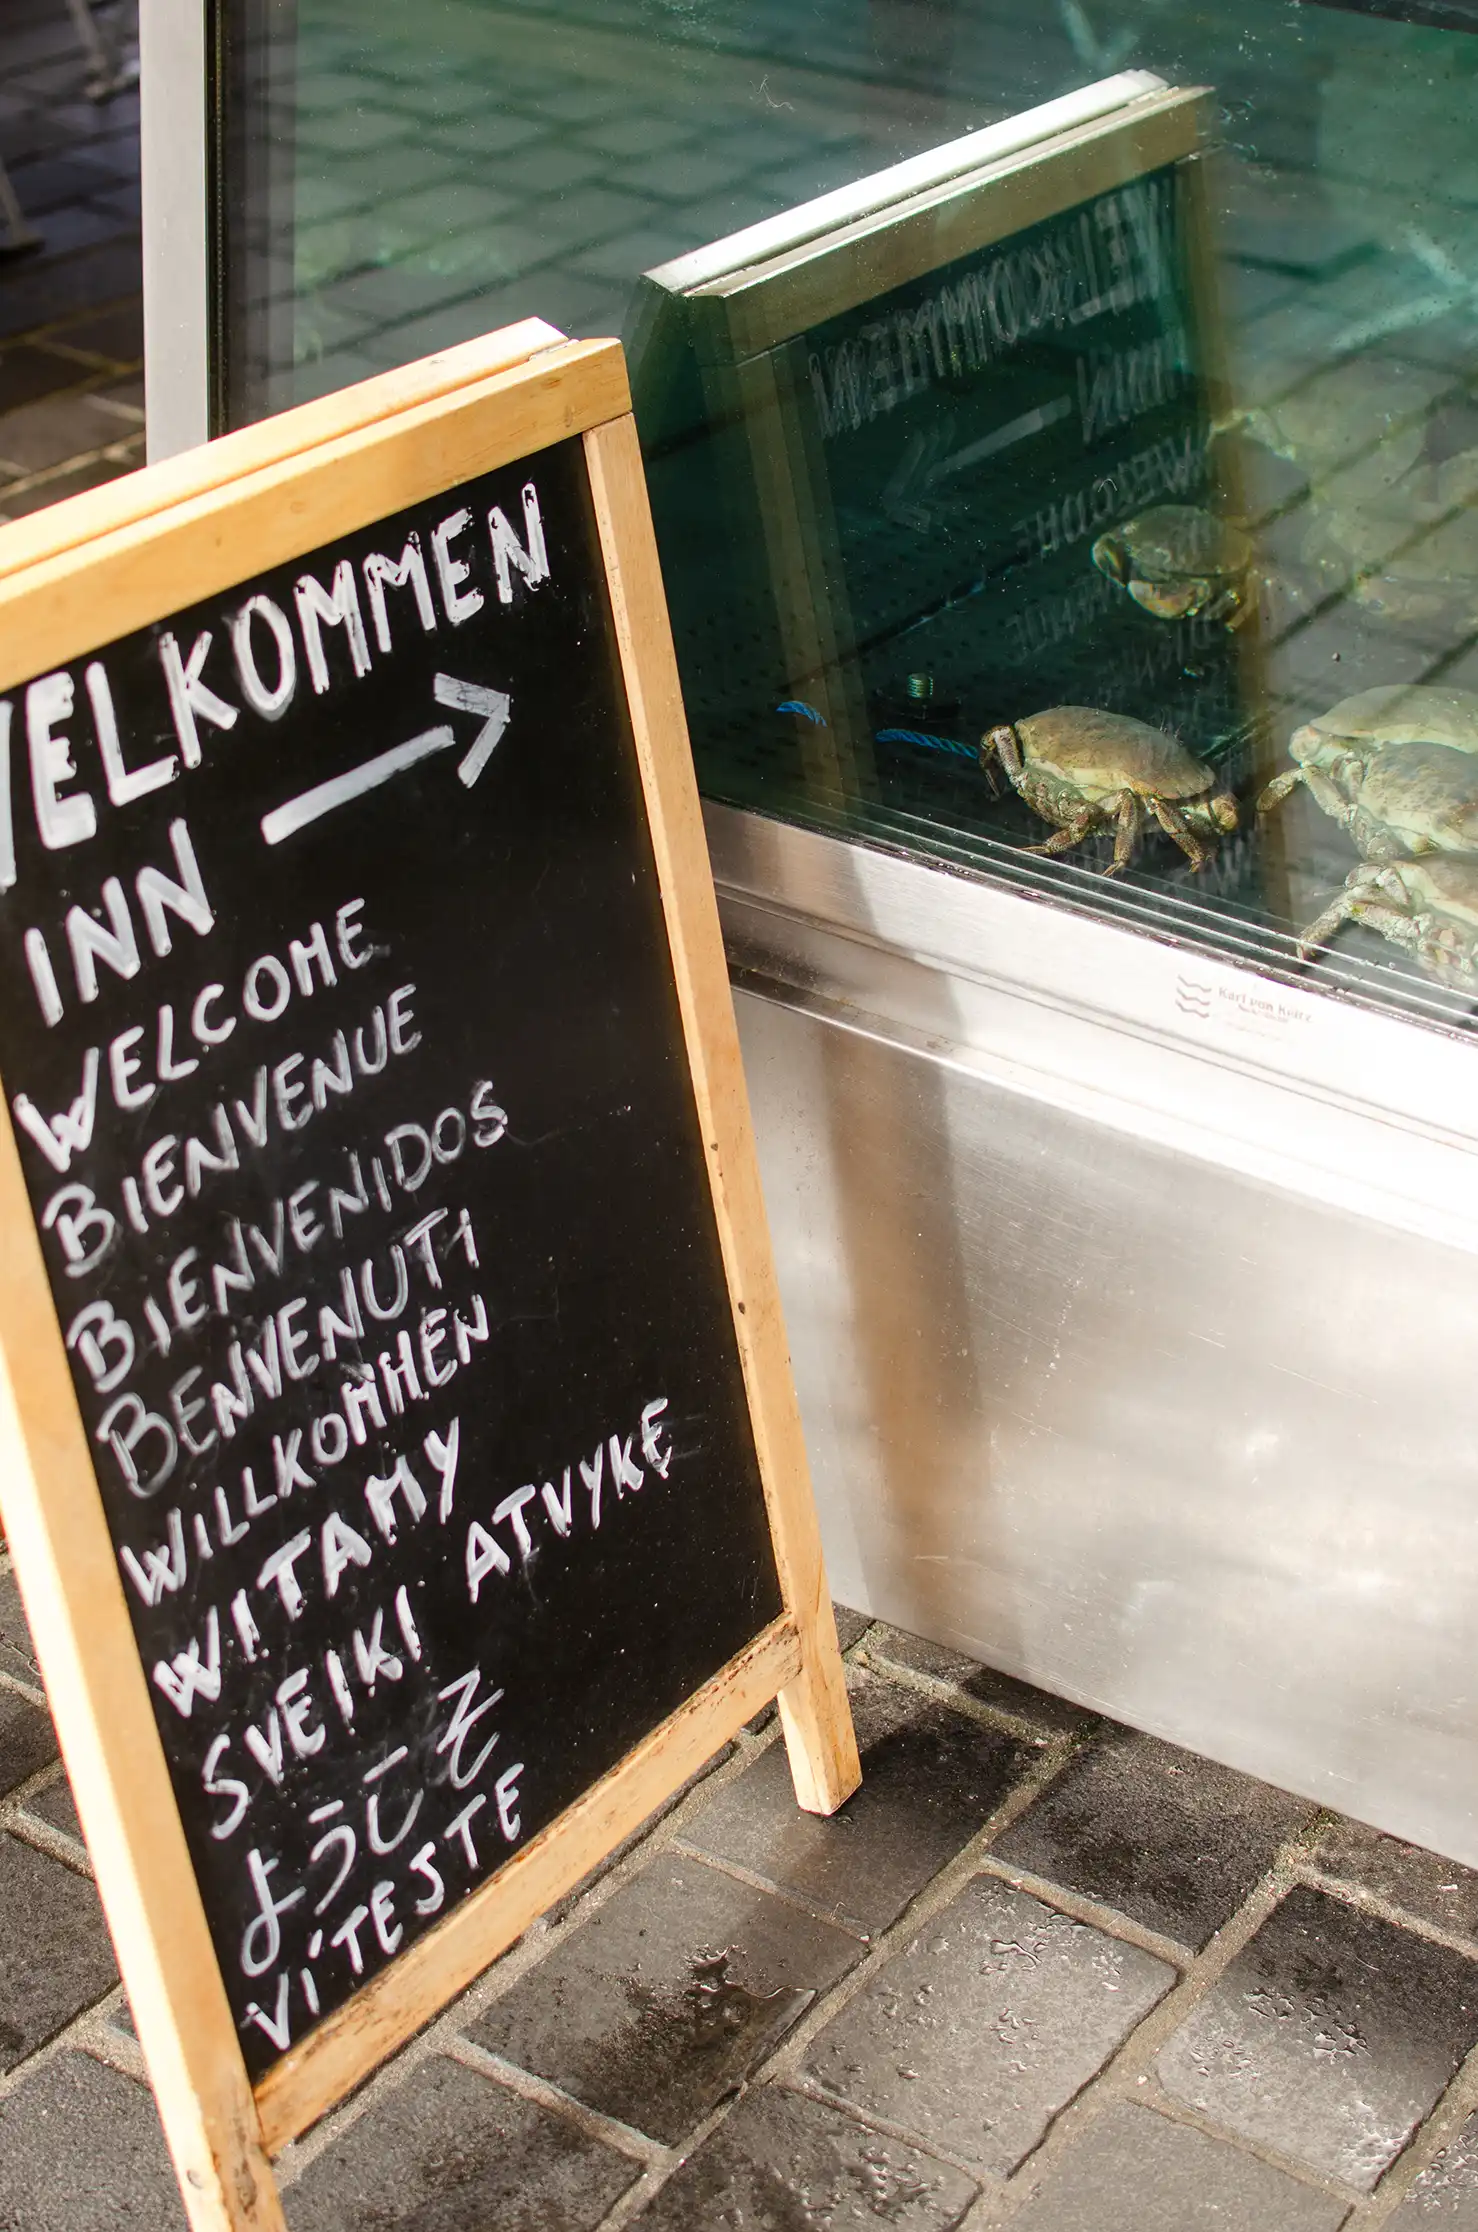 VELKOMMEN
INN →
WELCOME
BIENVENUE
BIENVENIDOS
BENVENUTI
WILLKOMMEN
WITAMY
SVEIKI ATVYKĘ
ようこそ
VÍTEJTE
Karl von Keitz